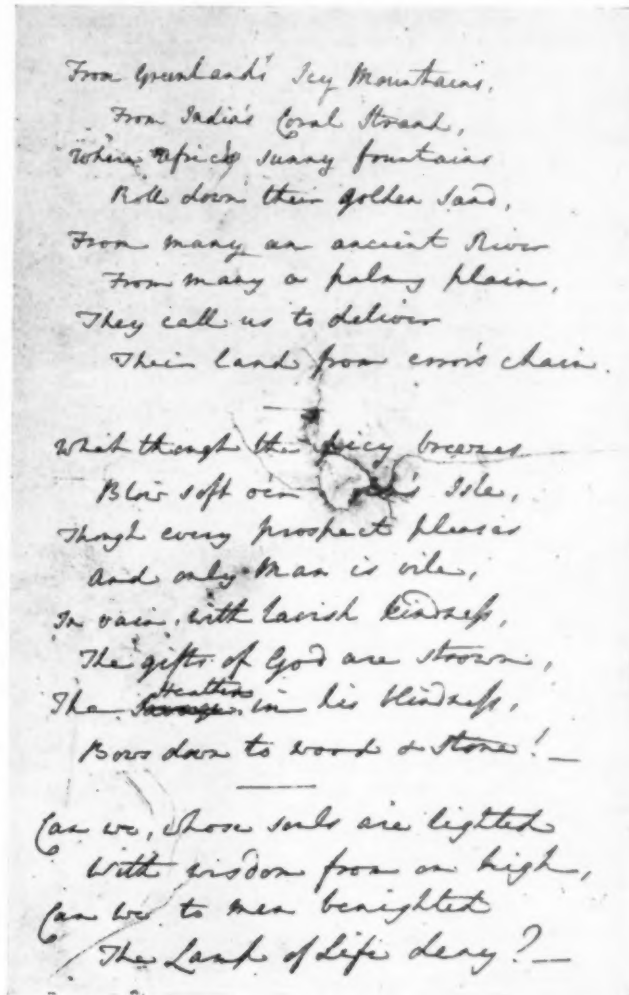 From Greenland's Icy Mountains,
From India's Coral Strand,
Where Africs sunny fountains
Roll down their golden Sand,
From many an ancient River
From many a palmy plain,
They call us to deliver
Their land from error's chain.
What though the spicy breezes
Blow soft o'er Isle,
Though every prospect pleases
And only Man is vile,
In vain, with lavish kindness,
The gifts of God are strown,
The Heathen in his blindness,
Bows down to wood & Stone! —
Can we, whose souls are lighted
With wisdom from on high,
Can we to men benighted
The Lamp of Life deny? —